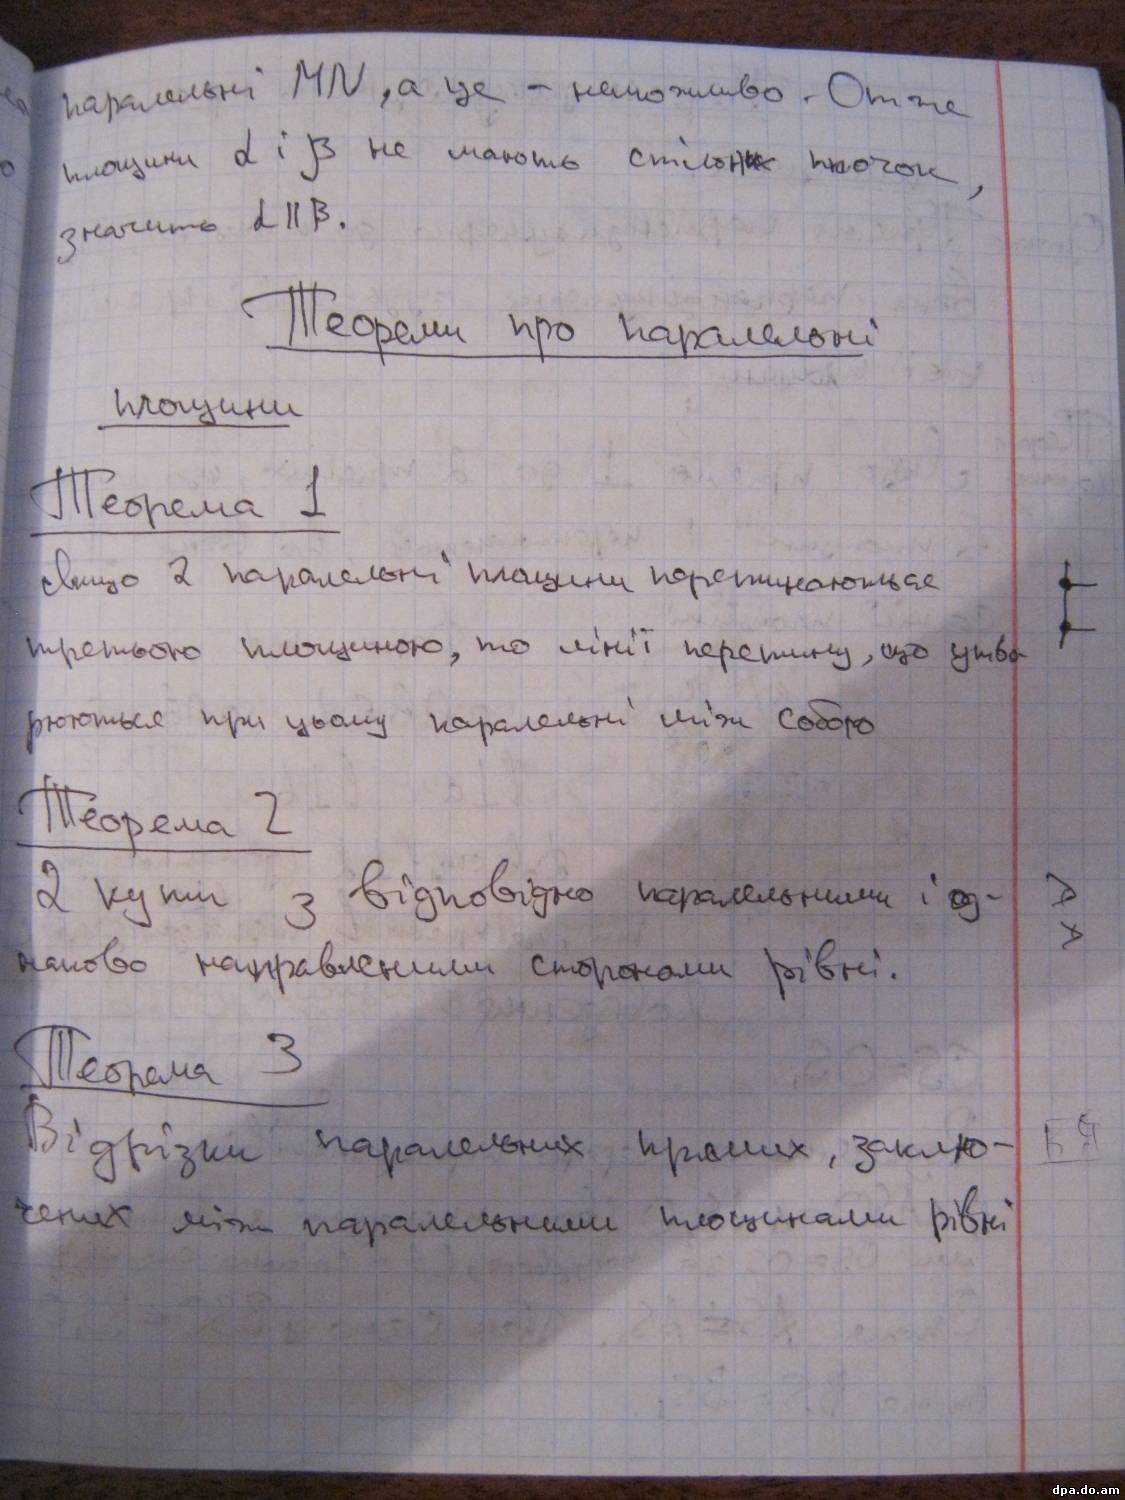 паралельні MN, а це - неможливо. Отже
площини α і β не мають спільних точок,
значить α || β.
Теореми про паралельні
площини
Теорема 1
Якщо 2 паралельні площини перетинаються
третьою площиною, то лінії перетину, що утво
рюються при цьому паралельні між собою
Теорема 2
2 кути з відповідно паралельними і од-
наково направленими сторонами рівні.
Теорема 3
Відрізки паралельних прямих, заклю-
чених між паралельними площинами рівні
dpa.do.am